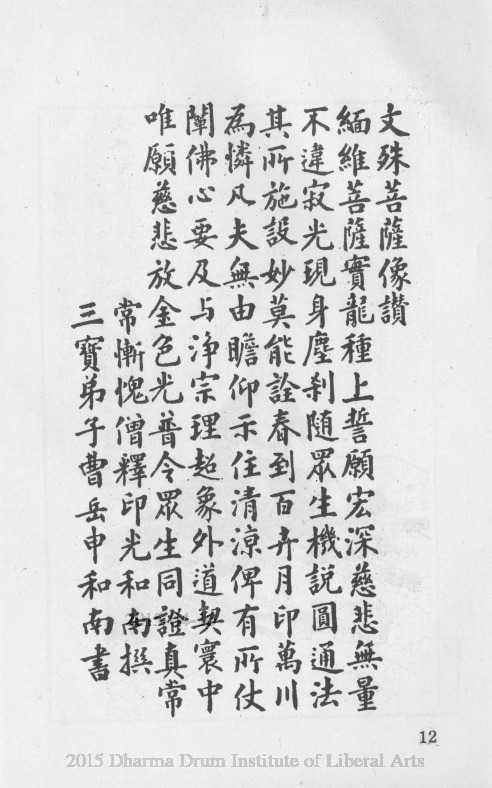 文殊菩薩像讃
緬維菩薩實龍種上誓願宏深慈悲無量
不違寂光現身塵刹随眾生機説圓通法
其所施設妙莫能詮春到百卉月印萬川
為憐凡夫無由瞻仰示住清涼俾有所仗
闡佛心要及与淨宗理超象外道契寰中
唯願慈悲放金色光普令眾生同證真常
常慚愧僧釋印光和南撰
三寶弟子曹岳申和南書
12
2015 Dharma Drum Institute of Liberal Arts